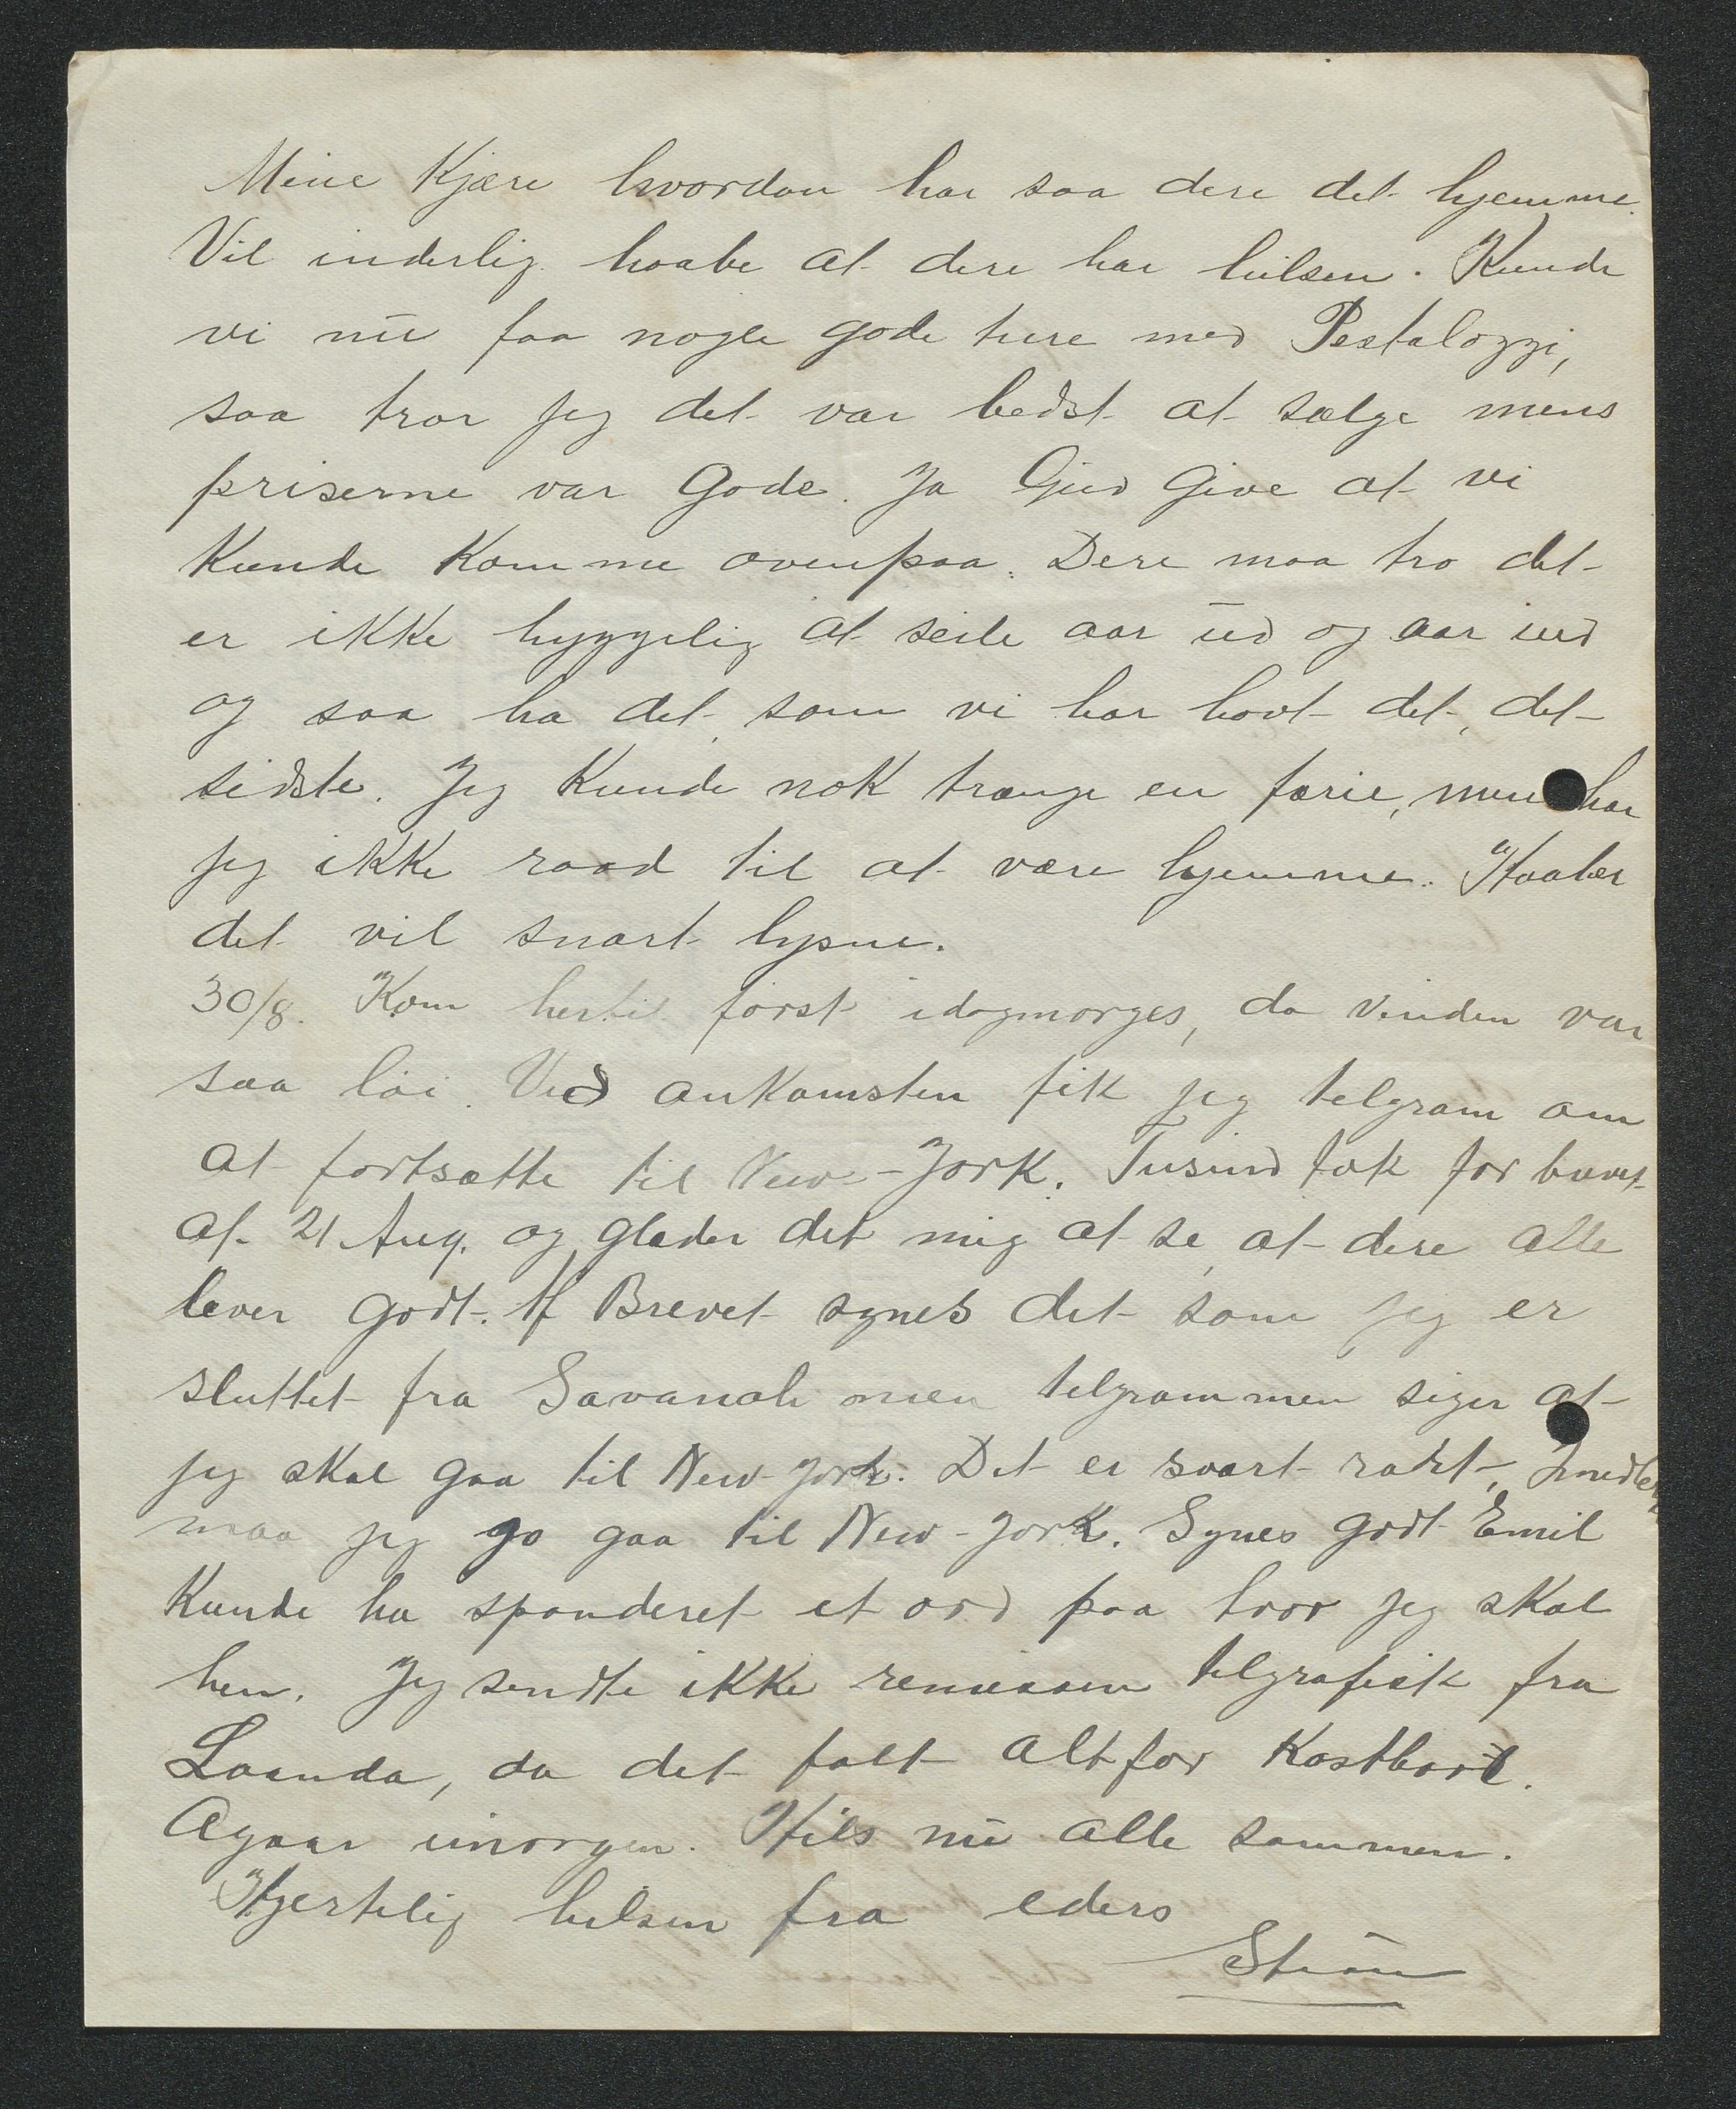 Mine Kjære hvordan har saa dere det hjemme.
Vil inderlig haabe at dere har hilsen. Kunde
vi nu faa nogle gode ture med Pestalozzi,
saa tror jeg det var bedst at sælge mens
priserne var gode. Ja Gud give at vi
kunde komme ovenpaa. Dere maa tro det
er ikke hyggelig at seile aar ud og aar ind
og saa ha det, som vi har havt det, det
sidste. Jeg kunde nok trænge en færie, men har
jeg ikke raad til at være hjemme. Haaber
det vil snart lysne.
30/8. Kom hertil først idagmorges, da vinden var
saa løi. Ved ankomsten fik jeg telgram om
at fortsætte til New-York. Tusind tak for brevet
af 21 Aug. og glæder det mig at se, at dere alle
lever godt. Af Brevet synes det som jeg er
sluttet fra Savanah men telgrammen siger at
jeg skal gaa til New York. Det er svært rart,
maa jeg jo gaa til New-York. Synes godt Emil
kunde ha sponderet et ord paa hvor jeg skal
hen. Jeg sendte ikke remissen telgrafisk fra
Loanda, da det falt altfor kostbart.
Agaar imorgen. Hils nu alle sammen.
Hjertelig hilsen fra eders